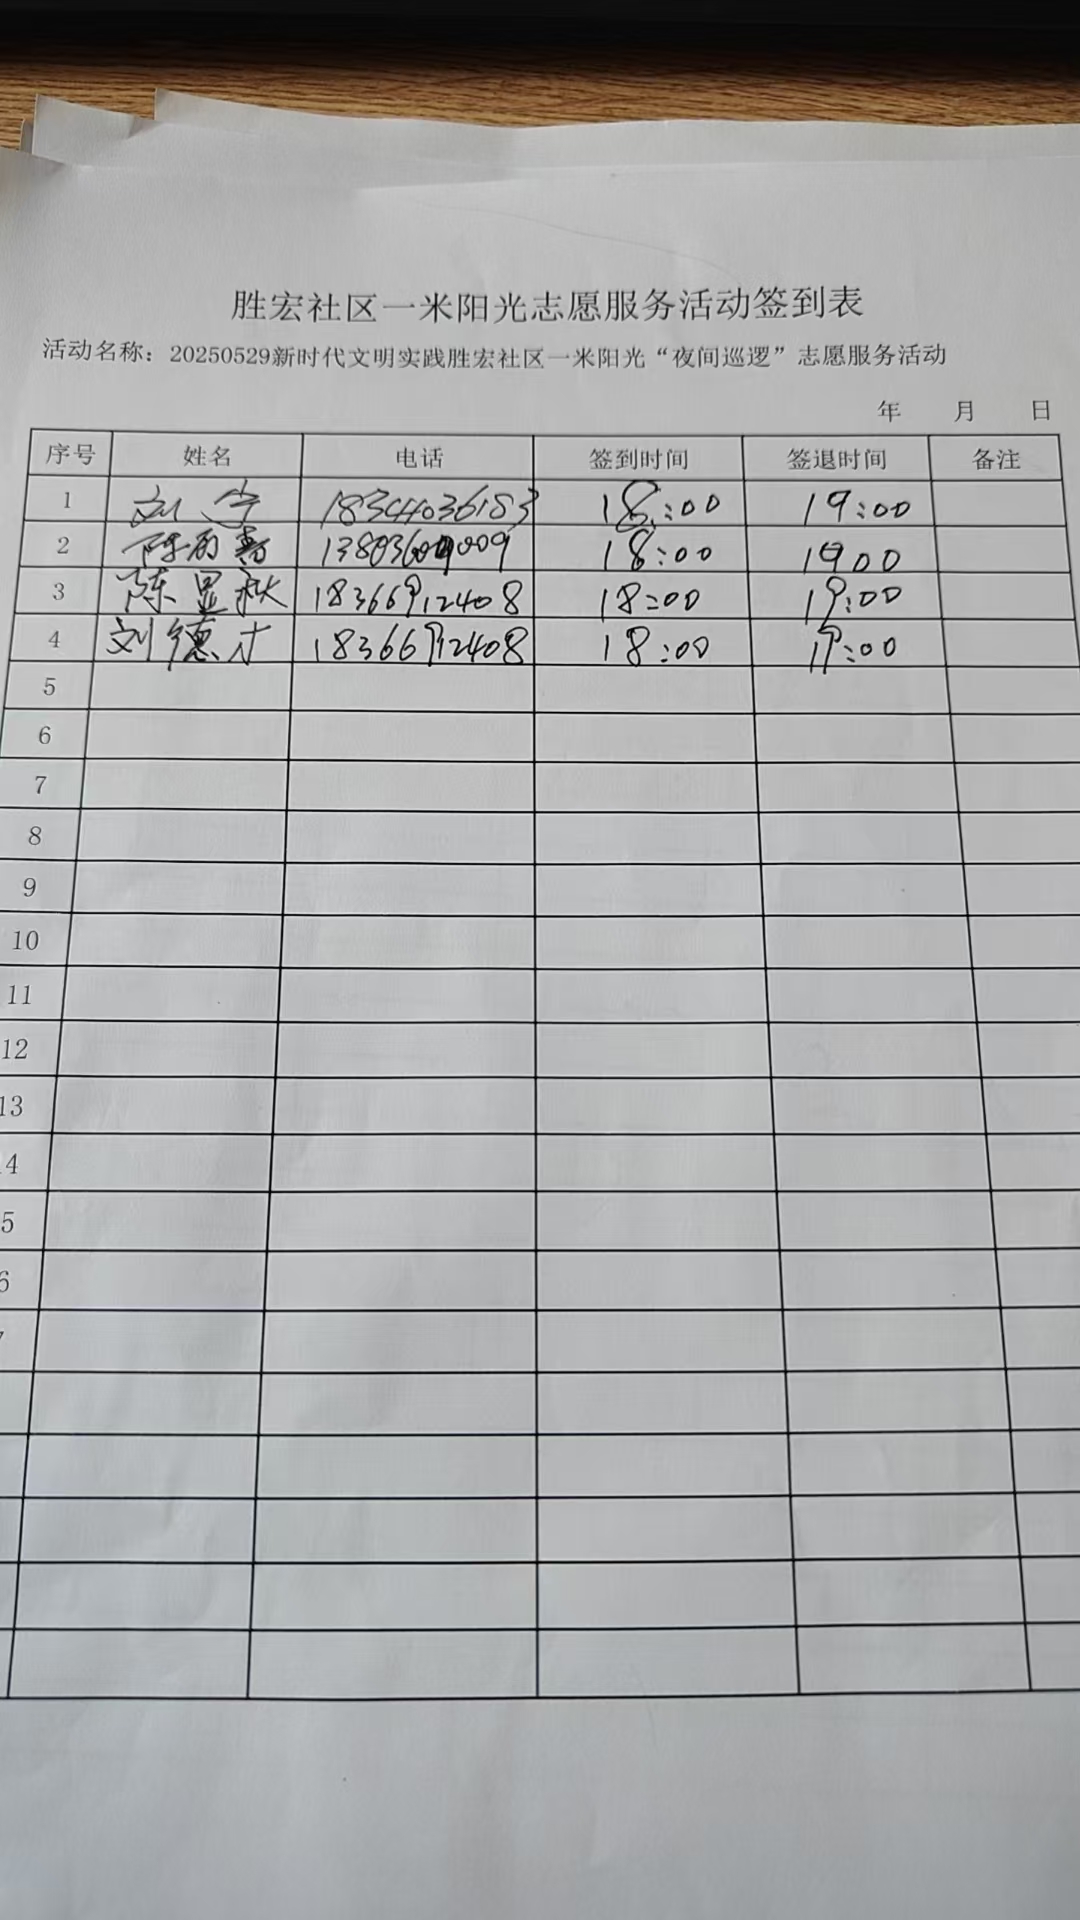 胜宏社区一米阳光志愿服务活动签到表
活动名称：20250529新时代文明实践胜宏社区一米阳光“夜间巡逻”志愿服务活动
年 月 日
序号 姓名 电话 签到时间 签退时间 备注
1 刘 18344036183 18:00 19:00
2 陈 18:00 1900
3 陈显秋 18366912408 18:00 19:00
4 刘德才 18366912408 18:00 19:00
5
6
7
8
9
10
11
12
13
4
5
6